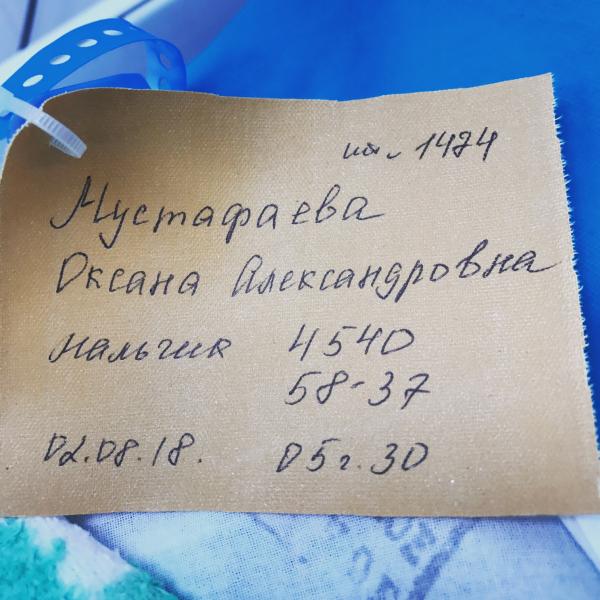 ш. 1474
Мустафаева
Оксана Александровна
мальчик 4540
58-37
02.08.18. 05г.30